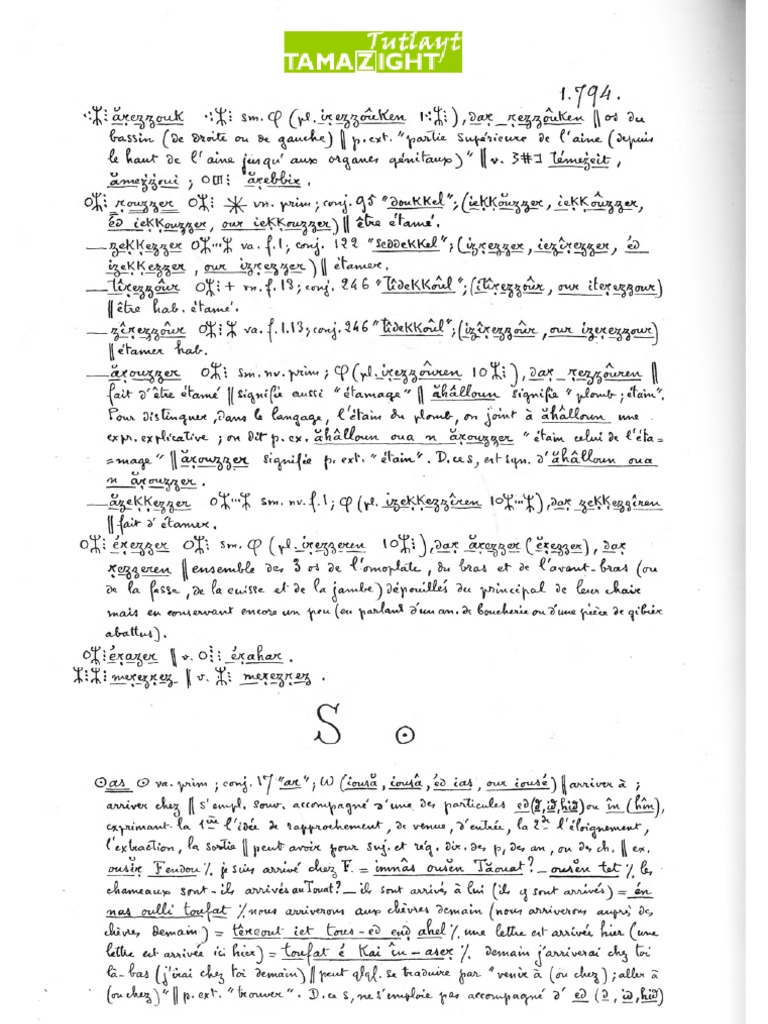 Tutlayt
TAMAZIGHT
1.794.
ărezzouk sm. φ (pl. irezzoûken), dar rezzoûken ‖ os du
bassin (de droite ou de gauche) ‖ p. ext. "partie supérieure de l'aine (depuis
le haut de l'aine jusqu'aux organes génitaux)" ‖ v. témezeit,
ămezzoui ; ărebbir.
ⵔⵣⵗ rouzzer vn. prim ; conj. 95 "doukkel" ; (iekkoŭzzer, iekkoûzzer,
éd iekkouzzer, our iekkouzzer) ‖ être étamé.
— zekkezzer va. f.1 ; conj. 122 "seddekkel" ; (izrezzer, iezîrezzer, éd
izekkezzer, our izrezzer) ‖ étamer.
— tîrezzoûr vn. f.13 ; conj. 246 "tîdekkoûl" ; (itîrezzoûr, our iterezzour)
‖ être hab. étamé.
— zîrezzoûr va. f.1.13 ; conj. 246 "tîdekkoûl" ; (izîrezzoûr, our izerezzour)
‖ étamer hab.
— ărouzzer sm. nv. prim ; φ (pl. irezzoûren), dar rezzoûren ‖
fait d'être étamé ‖ signifie aussi "étamage" ‖ ăhâlloun signifie "plomb ; étain".
Pour distinguer, dans le langage, l'étain du plomb, on joint à ăhâlloun une
expr. explicative ; on dit p. ex. ăhâlloun oua n ărouzzer "étain celui de l'éta=
=mage" ‖ ărouzzer signifie p. ext. "étain". D. ce s, est syn. d'ăhâlloun oua
n ărouzzer.
— ăzekkezzer sm. nv. f.1 ; φ (pl. izekkezzîren), dar zekkezzîren
‖ fait d'étamer.
érezzer sm. φ (pl. irezzeren), dar ărezzer (ĕrezzer), dar
rezzeren ‖ ensemble des 3 os de l'omoplate, du bras et de l'avant-bras (ou
de la fesse, de la cuisse et de la jambe) dépouillés du principal de leur chair
mais en conservant encore un peu (en parlant d'un an. de boucherie ou d'une pièce de gibier
abattus).
érazer ‖ v. érahar.
merezrez ‖ v. merezrez.
S ⊙
⊙ as ⊙ va. prim ; conj. 17 "ar" ; (iousă, iousâ, éd ias, our iousé) ‖ arriver à ;
arriver chez ‖ s'empl. souv. accompagné d'une des particules ed (d, id, hid) ou în (hîn),
exprimant la 1ère l'idée de rapprochement, de venue, d'entrée, la 2de l'éloignement,
l'extraction, la sortie ‖ peut avoir pour suj. et rég. dir. des p, des an, ou des ch. ‖ ex.
ousîr Fendou ⁒ je suis arrivé chez F. = innâs ousĕn Tăouat ? — ousĕn tet ⁒ les
chameaux sont-ils arrivés au Touat ? — ils sont arrivés à lui (ils y sont arrivés) = én
nas oulli toufat ⁒ nous arriverons aux chèvres demain (nous arriverons auprès des
chèvres demain) = tércout iet tous-ed end ahel ⁒ une lettre est arrivée hier (une
lettre est arrivée ici hier) = toufat é kai în-aser ⁒ demain j'arriverai chez toi
là-bas (j'irai chez toi demain) ‖ peut qlqf. se traduire par "venir à (ou chez) ; aller à
(ou chez)" ‖ p. ext. "trouver". D. ce s, ne s'emploie pas accompagné d' ed (d, id, hid)